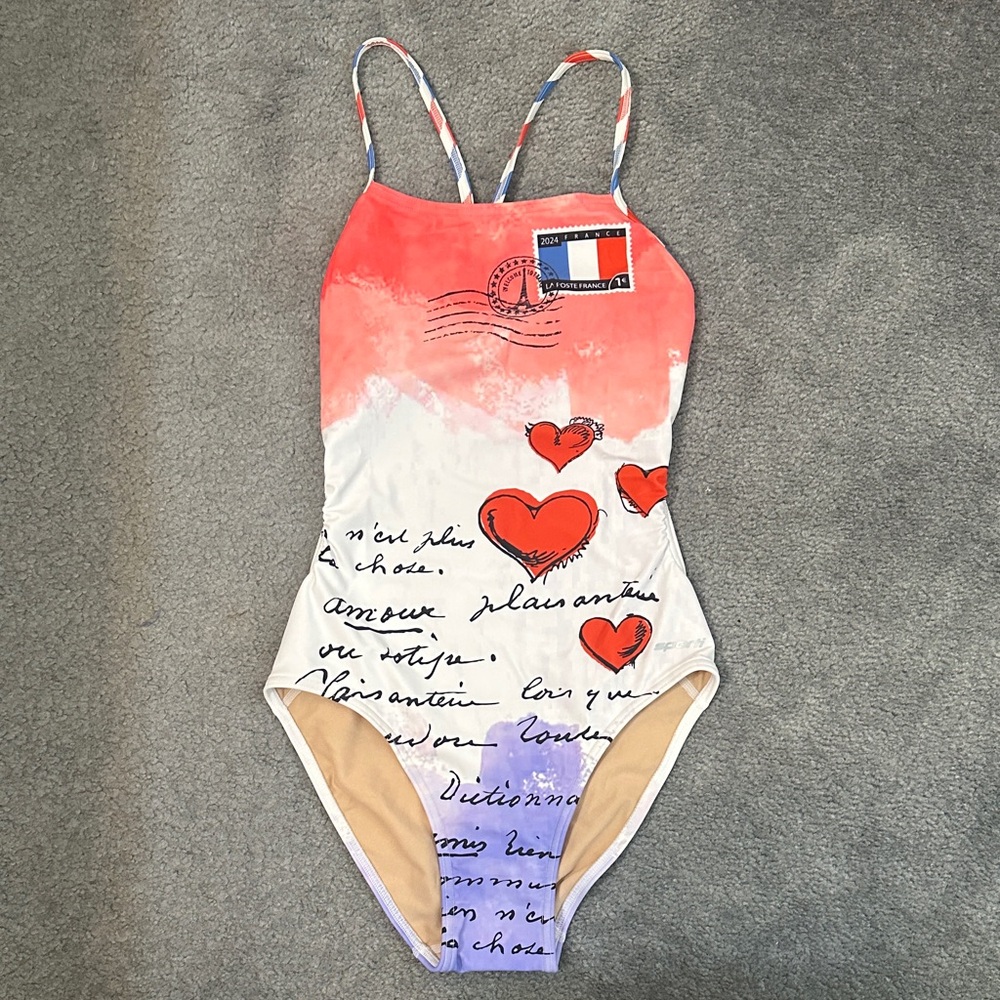 2024 FRANCE
LA POSTE FRANCE 1€
WELCOME TO
n'est plus
la chose.
amour plaisanterie
ou sotise.
Plaisanterie lors que
Toutes
Dictionna
amis rien
ommun
ien n'es
la chose
sporti